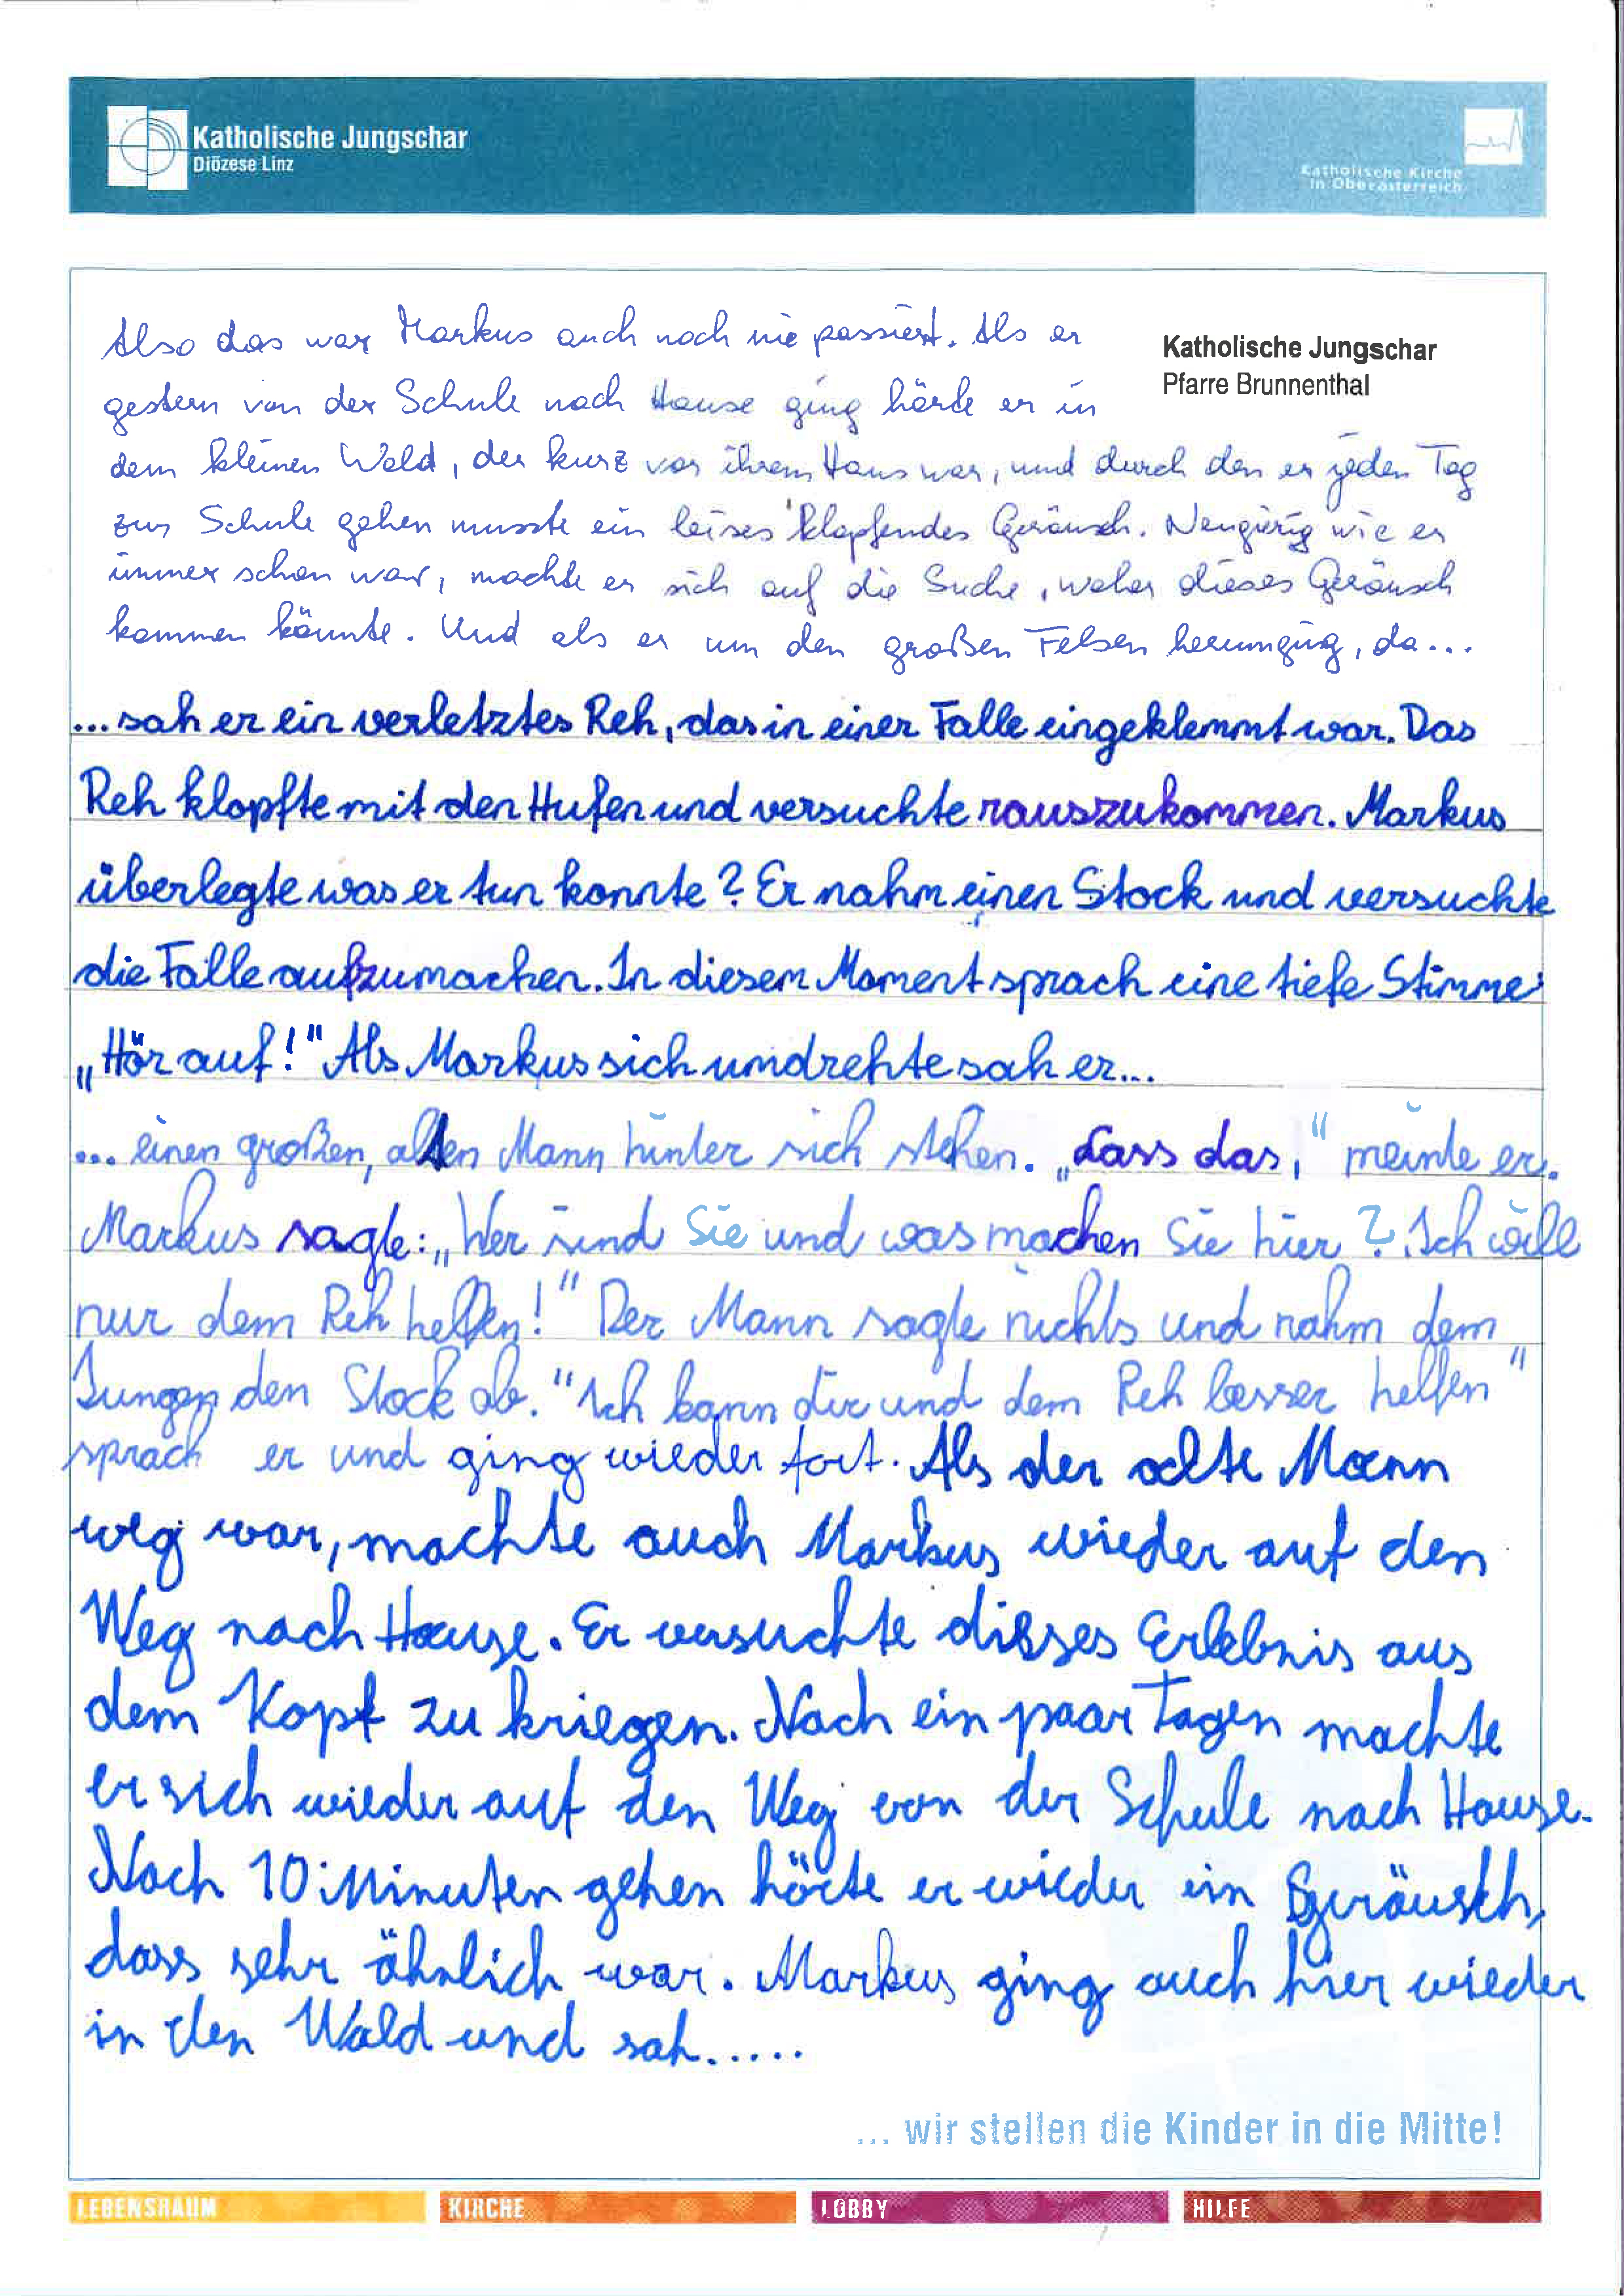 Katholische Jungschar
Diözese Linz
Katholische Kirche
in Oberösterreich
Katholische Jungschar
Pfarre Brunnenthal
Also das war Markus auch noch nie passiert. Als er
gestern von der Schule nach Hause ging hörte er in
dem kleinen Wald, der kurz vor ihrem Haus war, und durch den er jeden Tag
zur Schule gehen musste ein leises klopfendes Geräusch. Neugierig wie er
immer schon war, machte er sich auf die Suche, woher dieses Geräusch
kommen könnte. Und als er um den großen Felsen herumging, da...
...sah er ein verletztes Reh, das in einer Falle eingeklemmt war. Das
Reh klopfte mit den Hufen und versuchte rauszukommen. Markus
überlegte was er tun konnte? Er nahm einen Stock und versuchte
die Falle aufzumachen. In diesem Moment sprach eine tiefe Stimme:
„Hör auf!" Als Markus sich umdrehte sah er...
... einen großen, alten Mann hinter sich stehen. „Lass das," meinte er.
Markus sagte: „Wer sind Sie und was machen Sie hier? Ich will
nur dem Reh helfen!" Der Mann sagte nichts und nahm dem
Jungen den Stock ab. "Ich kann dir und dem Reh besser helfen"
sprach er und ging wieder fort. Als der alte Mann
weg war, machte auch Markus wieder auf den
Weg nach Hause. Er versuchte disses Erlebnis aus
dem Kopf zu kriegen. Nach ein paar Tagen machte
er sich wieder auf den Weg von der Schule nach Hause.
Nach 10 Minuten gehen hörte er wieder ein Geräusch,
dass sehr ähnlich war. Markus ging auch hier wieder
in den Wald und sah.....
... wir stellen die Kinder in die Mitte!
LEBENSRAUM
KIRCHE
LOBBY
HILFE